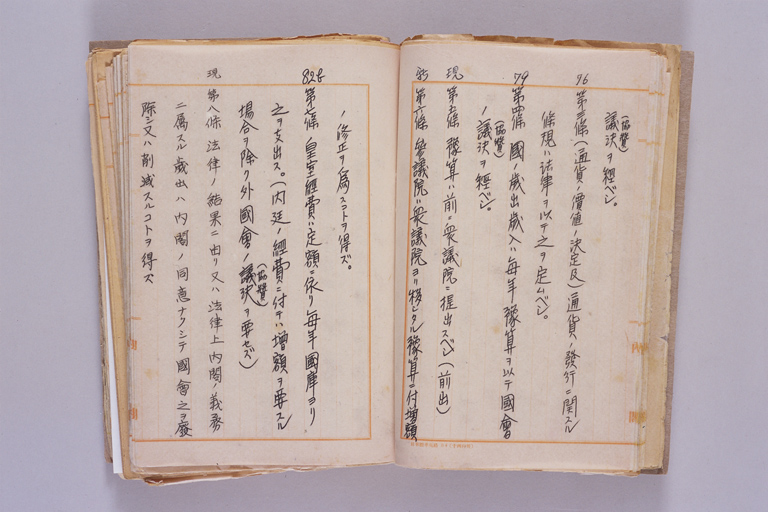 議決ヲ經ベシ。
(協賛)
76 第三條(通貨ノ價値ノ決定及)通貨ノ發行ニ関スル
條規ハ法律ヲ以テ之ヲ定ムベシ。
79 第四條 國ノ歳出歳入ハ毎年豫算ヲ以テ國會
ノ議決ヲ經ベシ。
(協賛)
現 第五條 豫算ハ前ニ衆議院ニ提出スベシ(前出)
新 第六條 參議院ハ衆議院ヨリ移シタル豫算ニ付増額
ノ修正ヲ爲スコトヲ得ズ。
82 第七條 皇室經費ハ定額ニ依リ毎年國庫ヨリ
之ヲ支出ス。(内廷ノ經費ニ付テハ増額ヲ要スル
場合ヲ除ク外國會ノ議決ヲ要セズ)
(協賛)
現 第八條 法律ノ結果ニ由リ又ハ法律上内閣ノ義務
ニ属スル歳出ハ内閣ノ同意ナクシテ國會之ヲ廢
除シ又ハ削減スルコトヲ得ズ